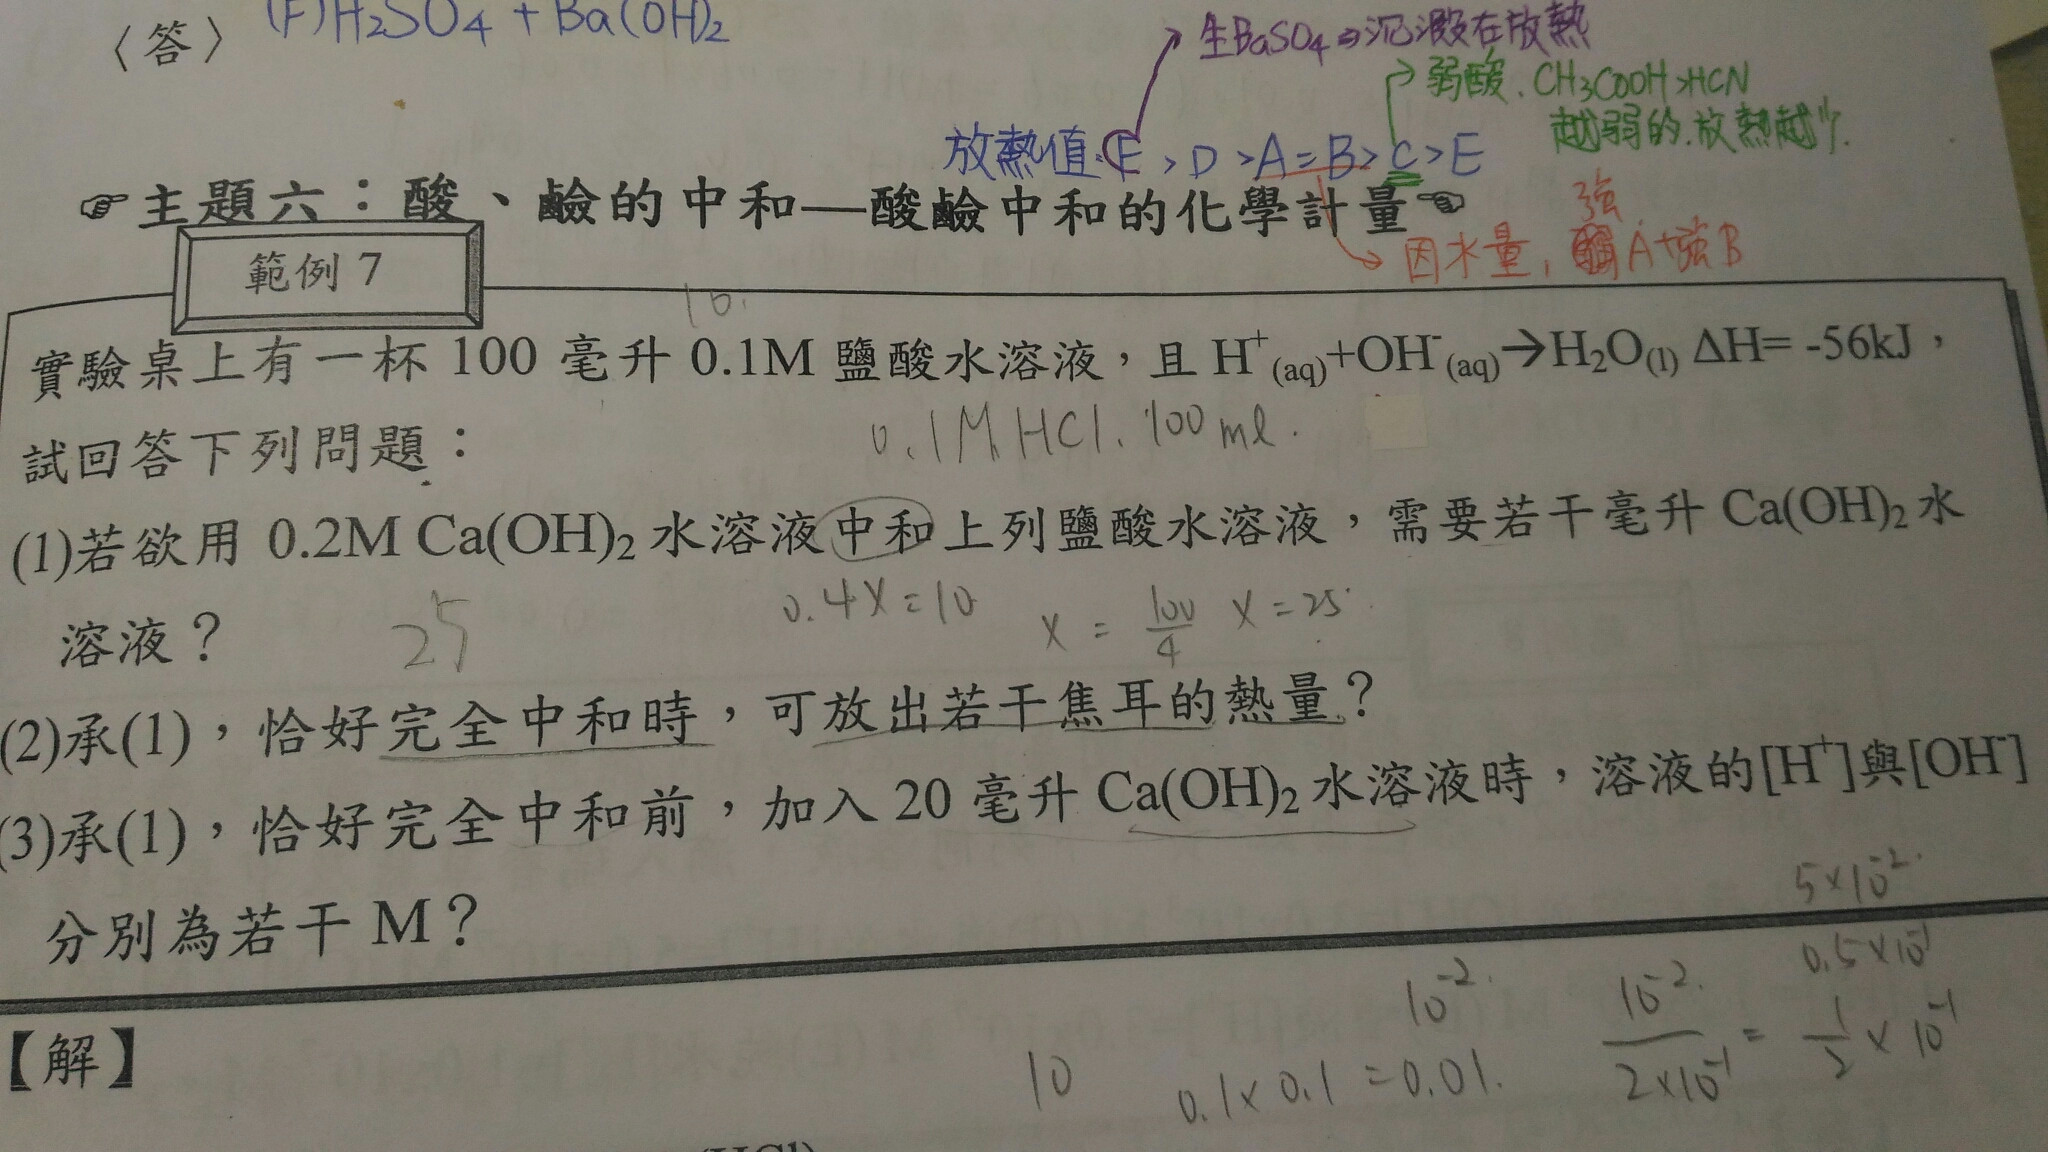 〈答〉 (F)H₂SO₄ + Ba(OH)₂
生BaSO₄⇒沉澱在放熱
弱酸.CH₃COOH>HCN
越弱的.放熱越少.
放熱值:F>D>A=B>C>E
☞主題六：酸、鹼的中和—酸鹼中和的化學計量☜
強
因水量, A+強B
範例 7
10.
實驗桌上有一杯 100 毫升 0.1M 鹽酸水溶液，且 H⁺(aq)+OH⁻(aq)→H₂O(l) ΔH= -56kJ，
試回答下列問題：
0.1M HCl. 100 ml.
(1)若欲用 0.2M Ca(OH)₂ 水溶液中和上列鹽酸水溶液，需要若干毫升 Ca(OH)₂ 水
溶液？ 25 0.4X=10 X = 100/4 X=25
(2)承(1)，恰好完全中和時，可放出若干焦耳的熱量？
(3)承(1)，恰好完全中和前，加入 20 毫升 Ca(OH)₂ 水溶液時，溶液的[H⁺]與[OH⁻]
分別為若干 M？
5×10⁻².
0.5×10⁻¹
【解】
10 0.1×0.1=0.01. 10⁻². 10⁻²/2×10⁻¹ = 1/2×10⁻¹
(HCl)